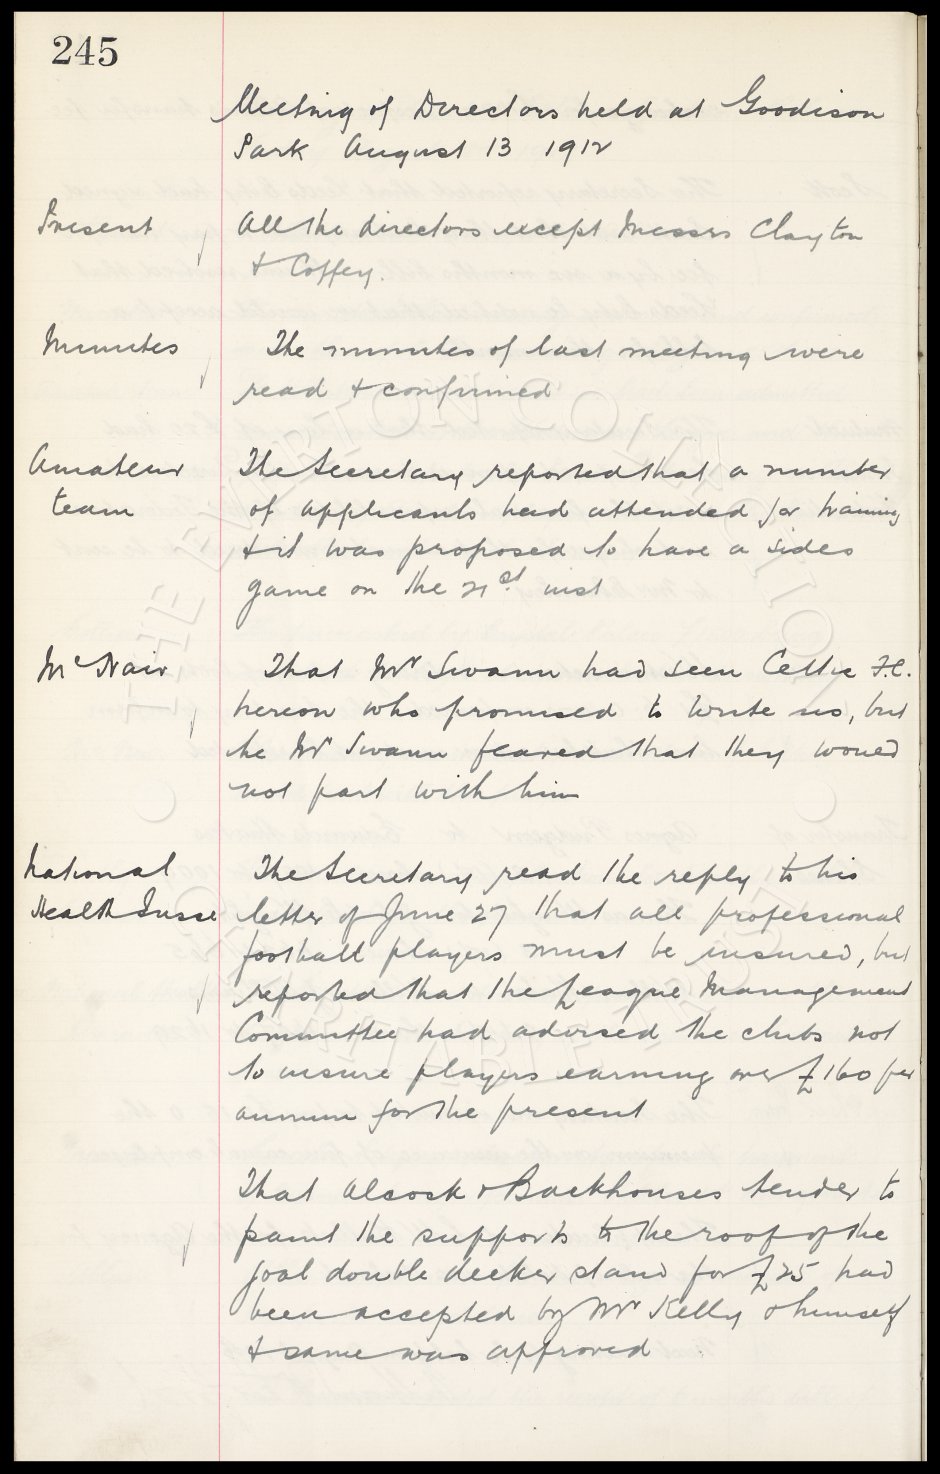 245
Meeting of Directors held at Goodison
Park August 13 1912
Present
All the directors except Messrs Clayton
& Coffey.
Minutes
The minutes of last meeting were
read & confirmed
Amateur
team
The Secretary reported that a number
of applicants had attended for training
& it was proposed to have a sides
game on the 21st inst
McNair
That Mr Swann had seen Celtic F.C.
hereon who promised to write us, but
he Mr Swann feared that they would
not part with him
National
Health Insce
The Secretary read the reply to his
letter of June 27 that all professional
football players must be insured, but
reported that the League Management
Committee had advised the clubs not
to insure players earning over £160 per
annum for the present
That Alcock & Backhouses tender to
paint the supports to the roof of the
goal double decker stand for £25 had
been accepted by Mr Kelly & himself
& same was approved
THE EVERTON COLLECTION
CHARITABLE TRUST